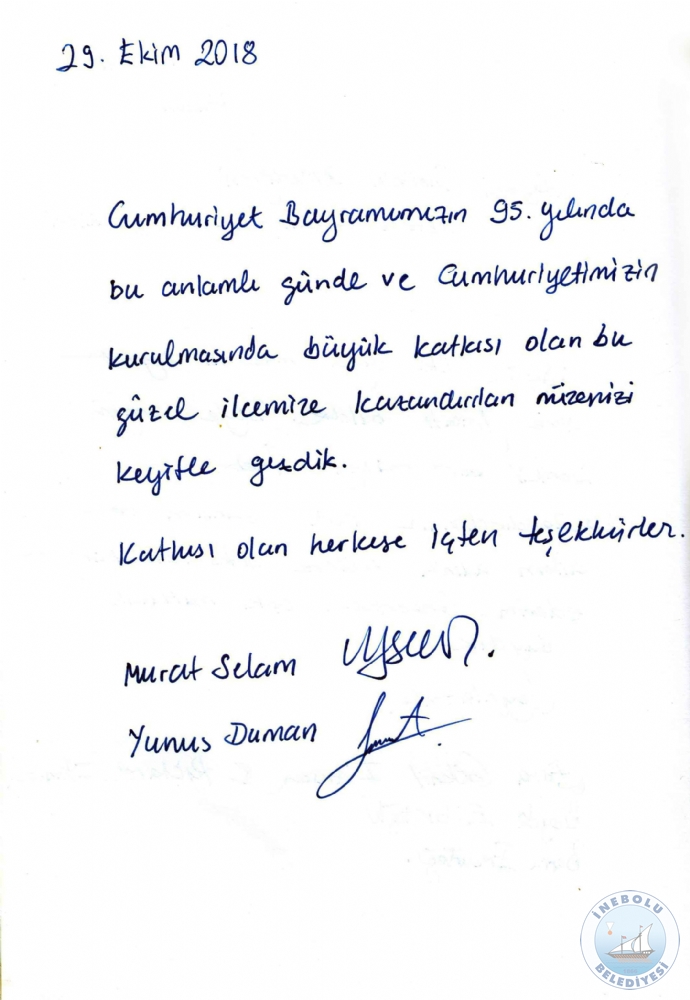 29. Ekim 2018
Cumhuriyet Bayramımızın 95. yılında
bu anlamlı günde ve Cumhuriyetimizin
kurulmasında büyük katkısı olan bu
güzel ilcemize kazandırılan müzenizi
keyifle gezdik.
Katkısı olan herkese içten teşekkürler.
Murat Selam
Yunus Duman
İNEBOLU
BELEDİYESİ